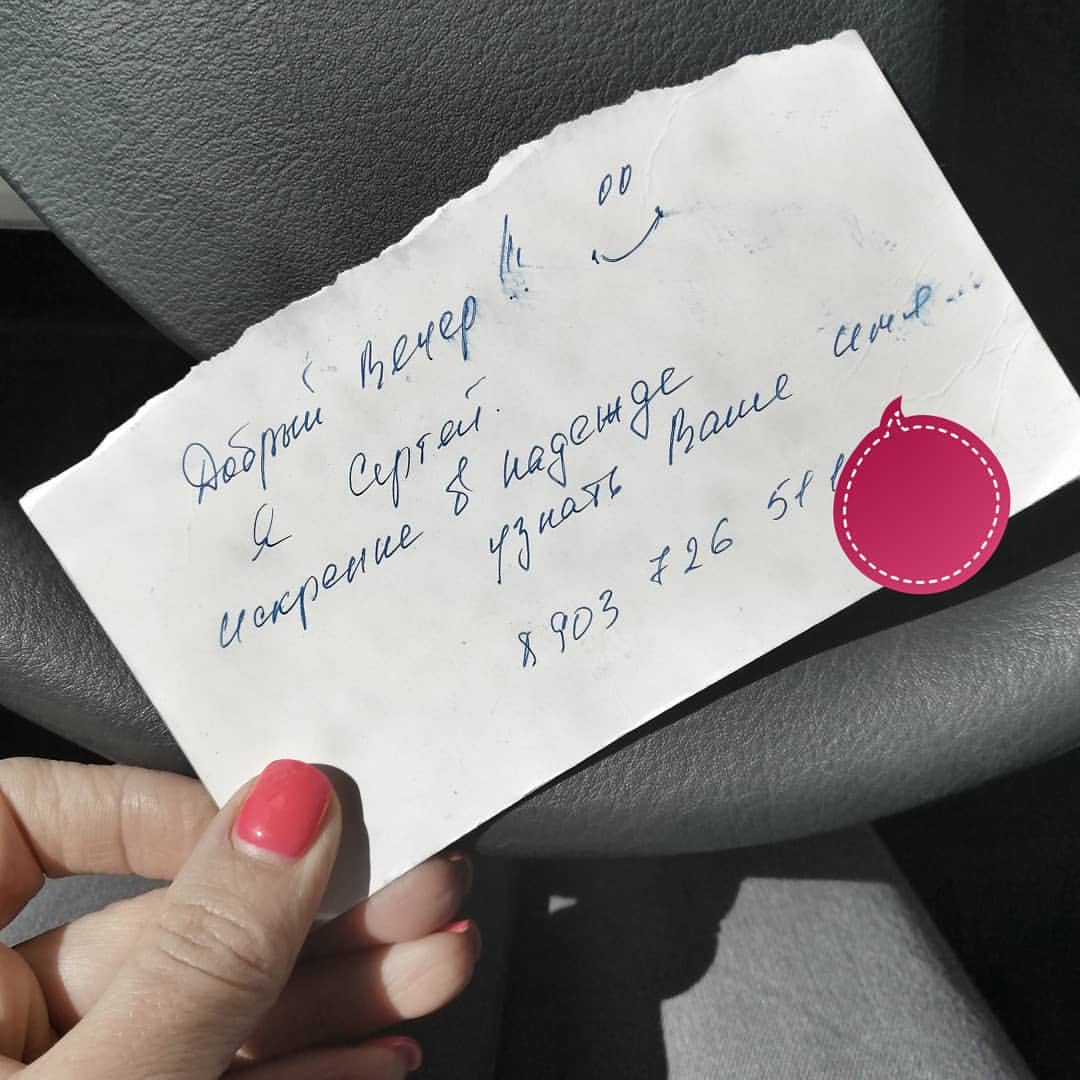 Добрый Вечер!!!
Я Сергей.
искренне в надежде
узнать Ваше имя...
8 903 726 51